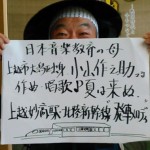 日本音楽教育の母
上越市大潟出身 小山作之助
作曲 唱歌『夏は来ぬ』
上越妙高駅 北陸新幹線 "発車メロディ"